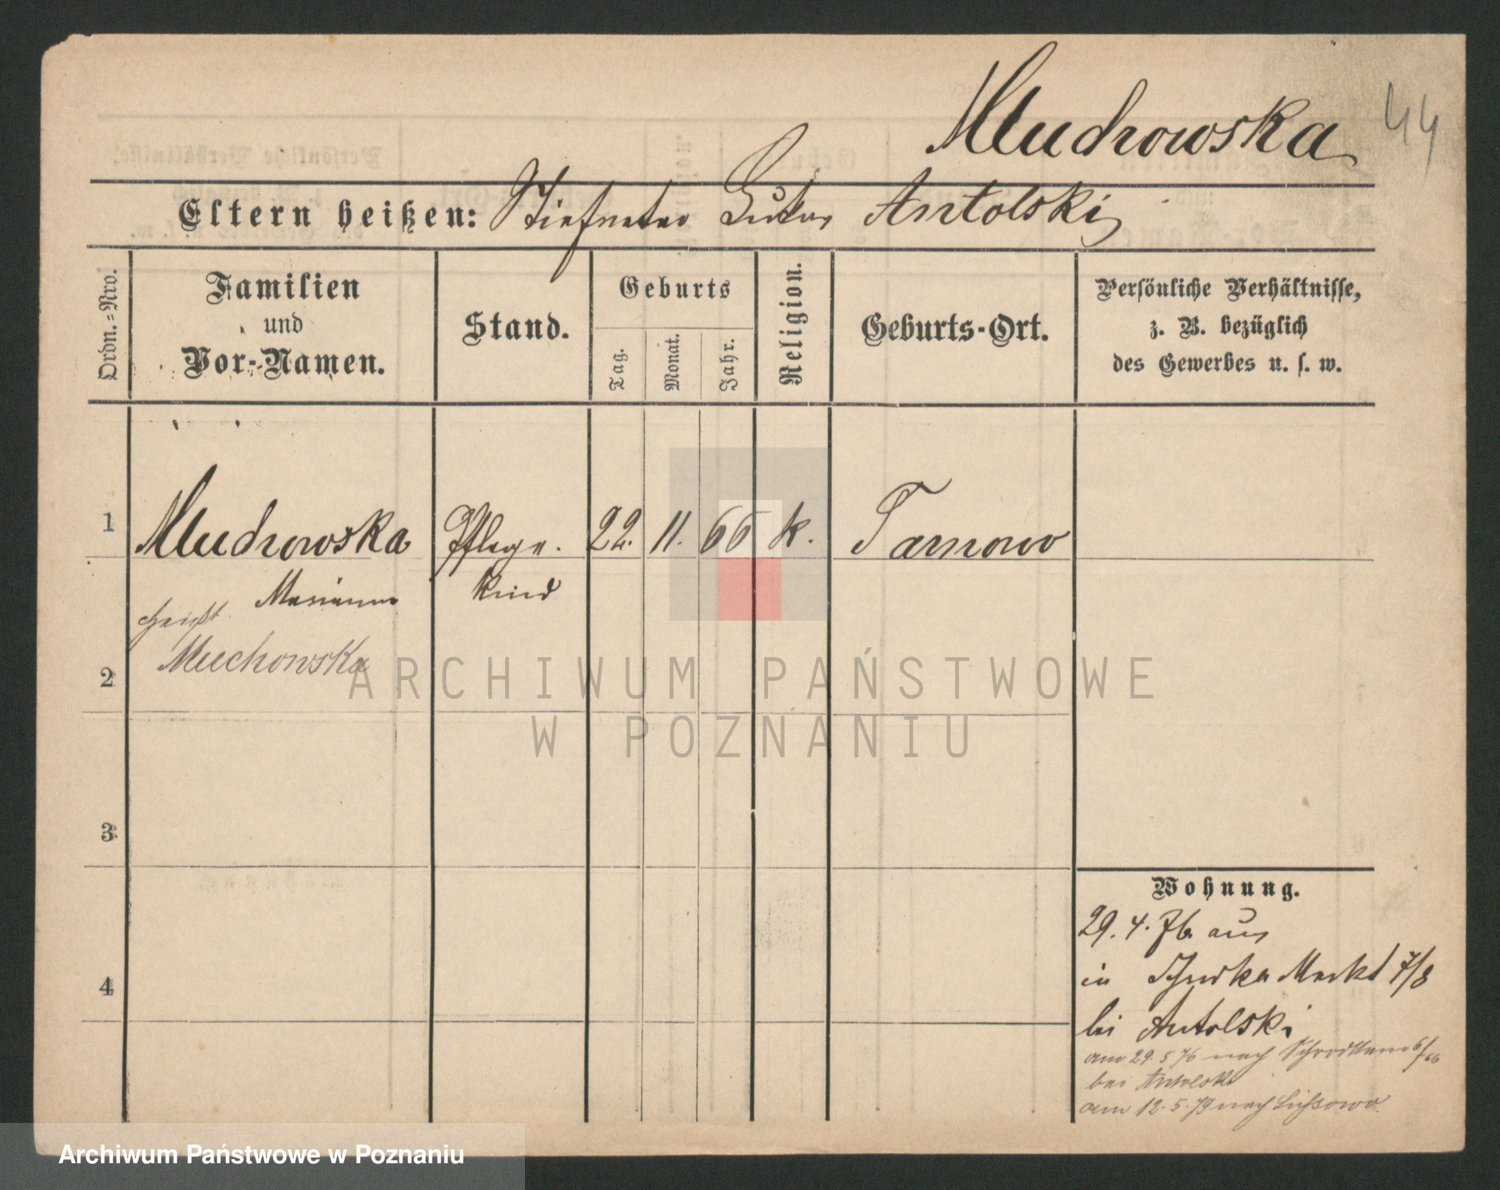 Muchowska 44
Eltern heißen: Stiefvater Lukas Antolski
Ordn.-Nro.
Familien
und
Vor-Namen.
Stand.
Geburts
Tag.
Monat.
Jahr.
Religion.
Geburts-Ort.
Persönliche Verhältnisse,
z. B. bezüglich
des Gewerbes u. s. w.
1 Pflege. 22. 11. 66 k. Tarnowo
Marianna kind
heißt
2 Muchowska
3
4
Wohnung.
29. 4. 76 aus
in Markt 7/8
bei Antolski
am 29. 5 76 nach
bei Antolski
am 12. 5. 79 nach
ARCHIWUM PAŃSTWOWE
W POZNANIU
Archiwum Państwowe w Poznaniu